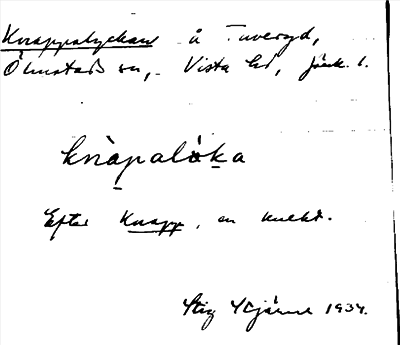 Knappalyckan å Tuveryd,
Ölmstads sn, Vista hd, Jönk. l.
knàpalöka
Efter Knapp, en knekt.
Stig 1934.